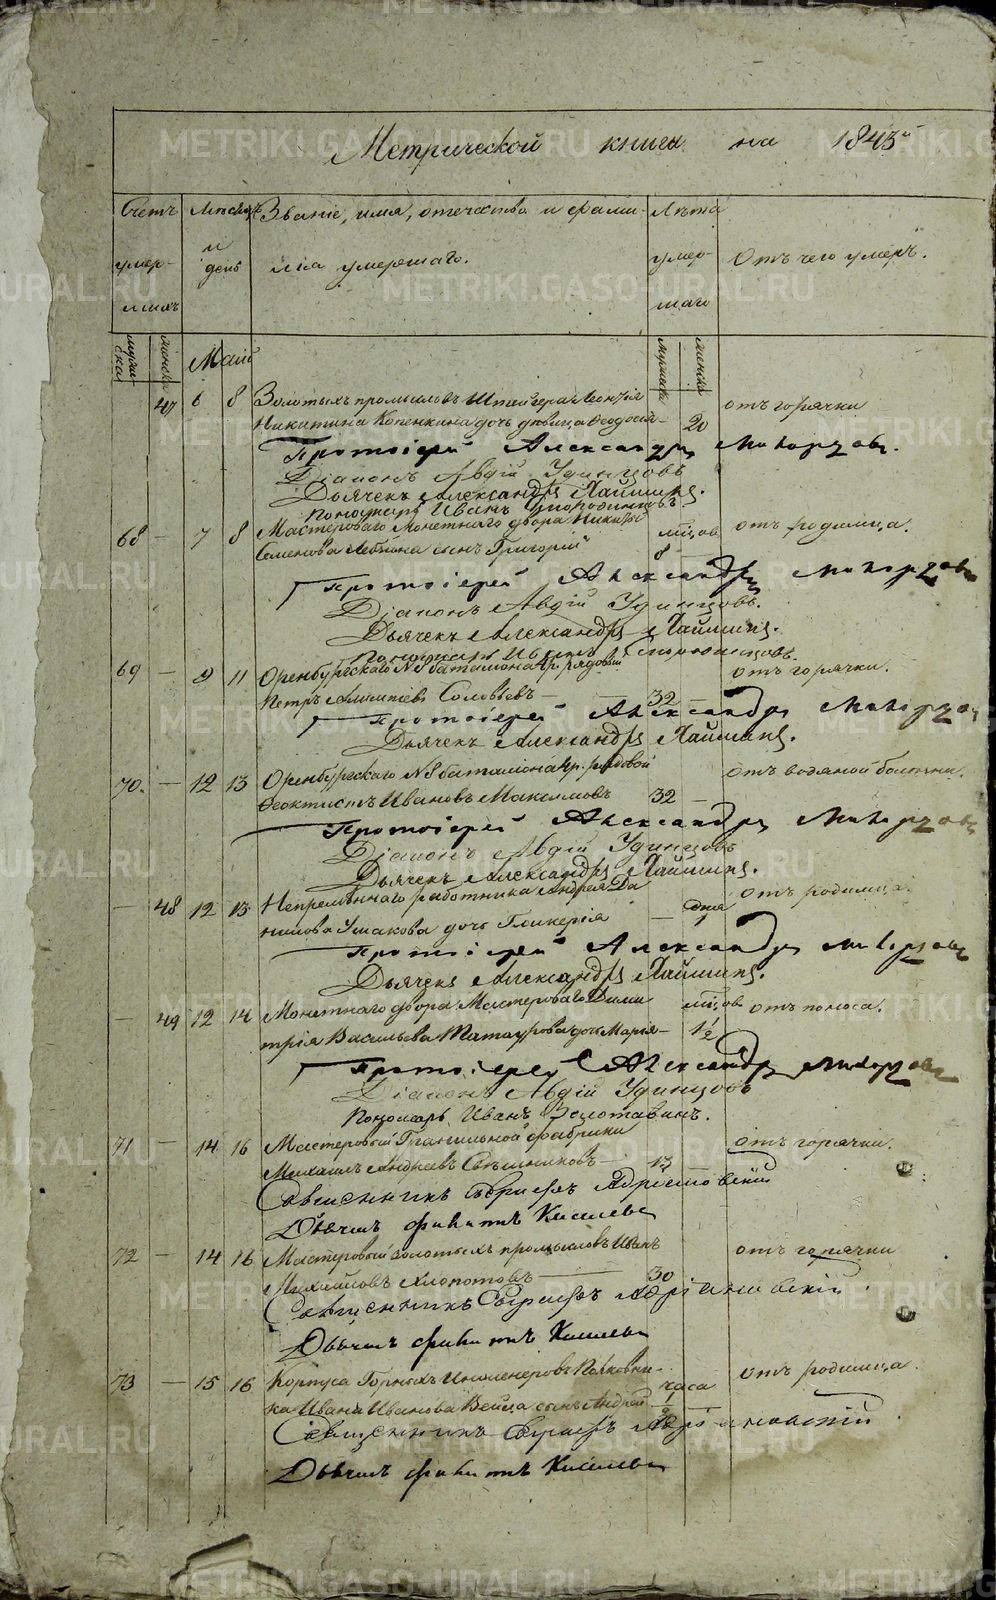 Метрической книги на 1843й
Счетъ умершихъ
Мѣсяцъ и день
Званіе, имя, отечество и фамилія умершаго.
Лѣта умершаго
Отъ чего умеръ.
мужеска
женска
Май
мужеска
женска
47 6 8 Золотыхъ промысловъ Штейгера Леонтія
Никитина Копенкина дочь дѣвица Ѳеодосія 20 отъ горячки
Протоіерей Александръ
Діаконъ Авдій Удинцовъ
Дьячекъ Александръ
Пономарь Иванъ
68 — 7 8 Мастероваго Монетнаго двора Никиты
Семенова сынъ Григорій мѣсцов 8 отъ родимца.
Протоіерей Александръ
Діаконъ Авдій Удинцовъ.
Дьячекъ Александръ
Пономарь Иванъ
69 — 9 11 Оренбургскаго №8 баталіона рядовый
Петръ Соловьевъ — 32 — отъ горячки.
Протоіерей Александръ
Дьячекъ Александръ
70. — 12 13 Оренбургскаго №8 баталіона рядовой
Ѳеоктистъ Ивановъ Максимовъ 32 — отъ водяной болѣзни.
Протоіерей Александръ
Діаконъ Авдій Удинцовъ
Дьячекъ Александръ
— 48 12 13 Непремѣннаго работника Андрея Да
нилова Ушакова дочь Гликерія — дня 1 отъ родимца.
Протоіерей Александръ
Дьячекъ Александръ
— 49 12 14 Монетнаго двора Мастероваго Дими
трія Васильева Татаурова дочь Марія — мѣсцов 1½ отъ поноса.
Протоіерей Александръ
Діаконъ Авдій Удинцовъ
Пономарь Иванъ Золотавинъ.
71 — 14 16 Мастеровый Гранильной фабрики
Михаилъ Андреевъ — 13 — отъ горячки.
Священникъ
Дьячекъ Киселевъ
72 — 14 16 Мастеровый золотыхъ промысловъ Иванъ
Михайловъ Хлопотовъ — 30 отъ горячки
Священникъ
Дьячекъ Киселевъ
73 — 15 16 Корпуса Горныхъ Инженеровъ Полковни-
ка Ивана Иванова Вейца сынъ Андрей часа ½ отъ родимца.
Священникъ
Дьячекъ Киселевъ
METRIKI.GASO-URAL.RU